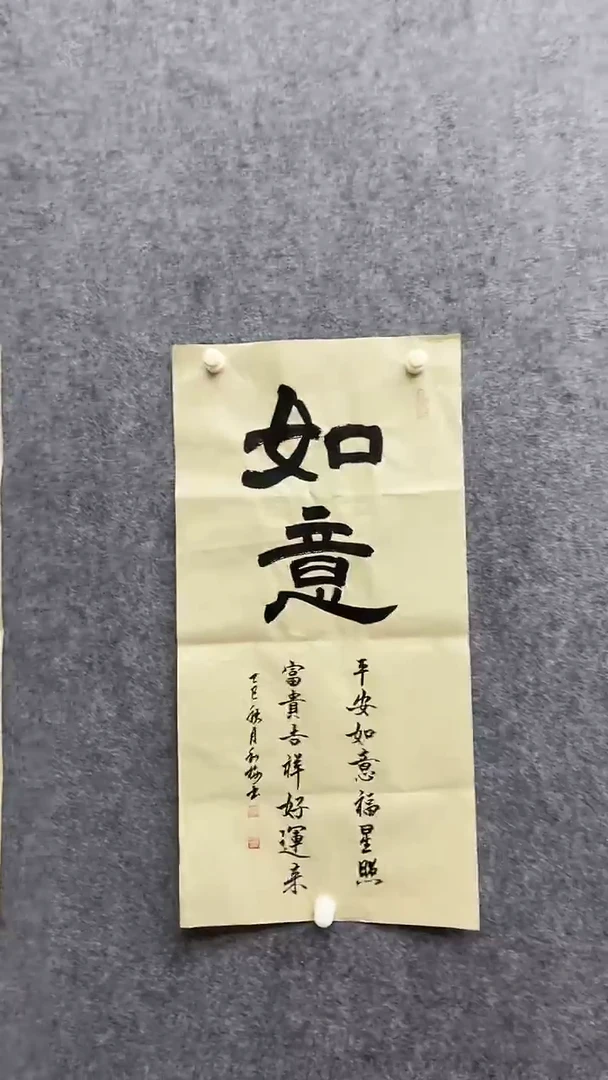 如意
平安如意福星照
富貴吉祥好運来
乙巳秋月利梅书